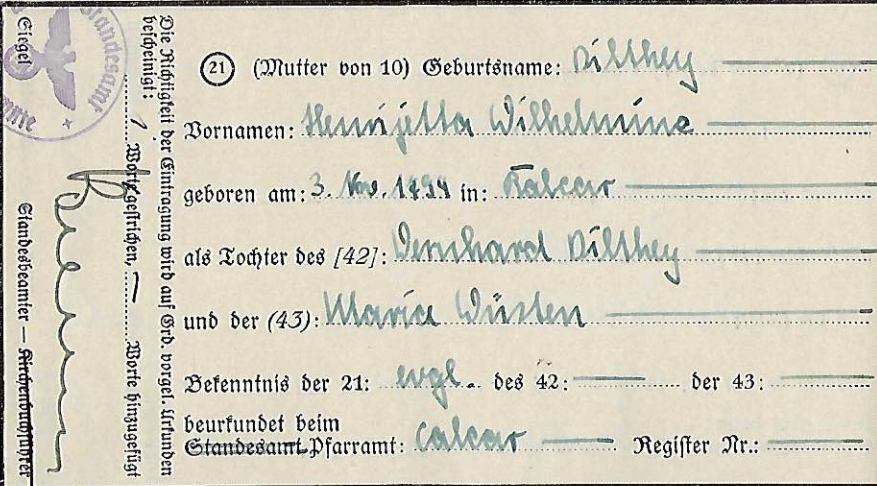 Siegel
Standesamt
Die Richtigkeit der Eintragung wird auf Grd. vorgel. Urkunden
bescheinigt:
1 Worte gestrichen, — Worte hinzugefügt
Standesbeamter — Kirchenbuchführer
21 (Mutter von 10) Geburtsname: Dilthey
Vornamen: Henrijetta Wilhelmine
geboren am: 3. Nov. 1794 in: Kalcar
als Tochter des [42]: Bernhard Dilthey
und der (43): Maria Wüsten
Bekenntnis der 21: evgl. des 42: — der 43: —
beurkundet beim
Standesamt Pfarramt: Calcar — Register Nr.: —